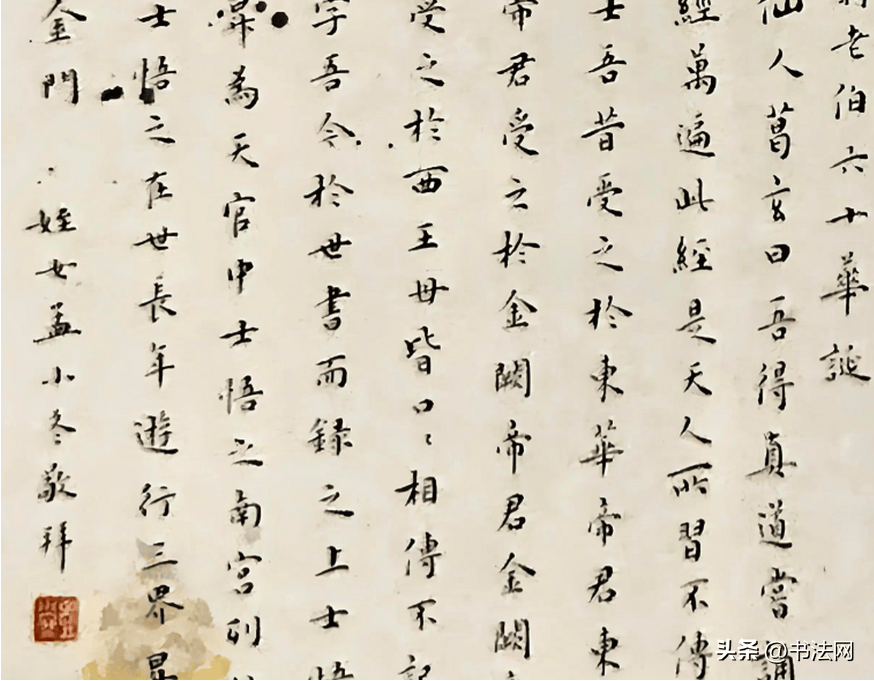 老伯六十華誕
仙人葛玄曰吾得真道當誦
經萬遍此經是天人所習不傳
士吾昔受之於東華帝君東
帝君受之於金闕帝君金闕
受之於西王母皆口口相傳不記
字吾今於世書而錄之上士悟
昇為天官中士悟之南宮列
士悟之在世長年遊行三界昇
金門
姪女孟小冬敬拜
头条 @书法网